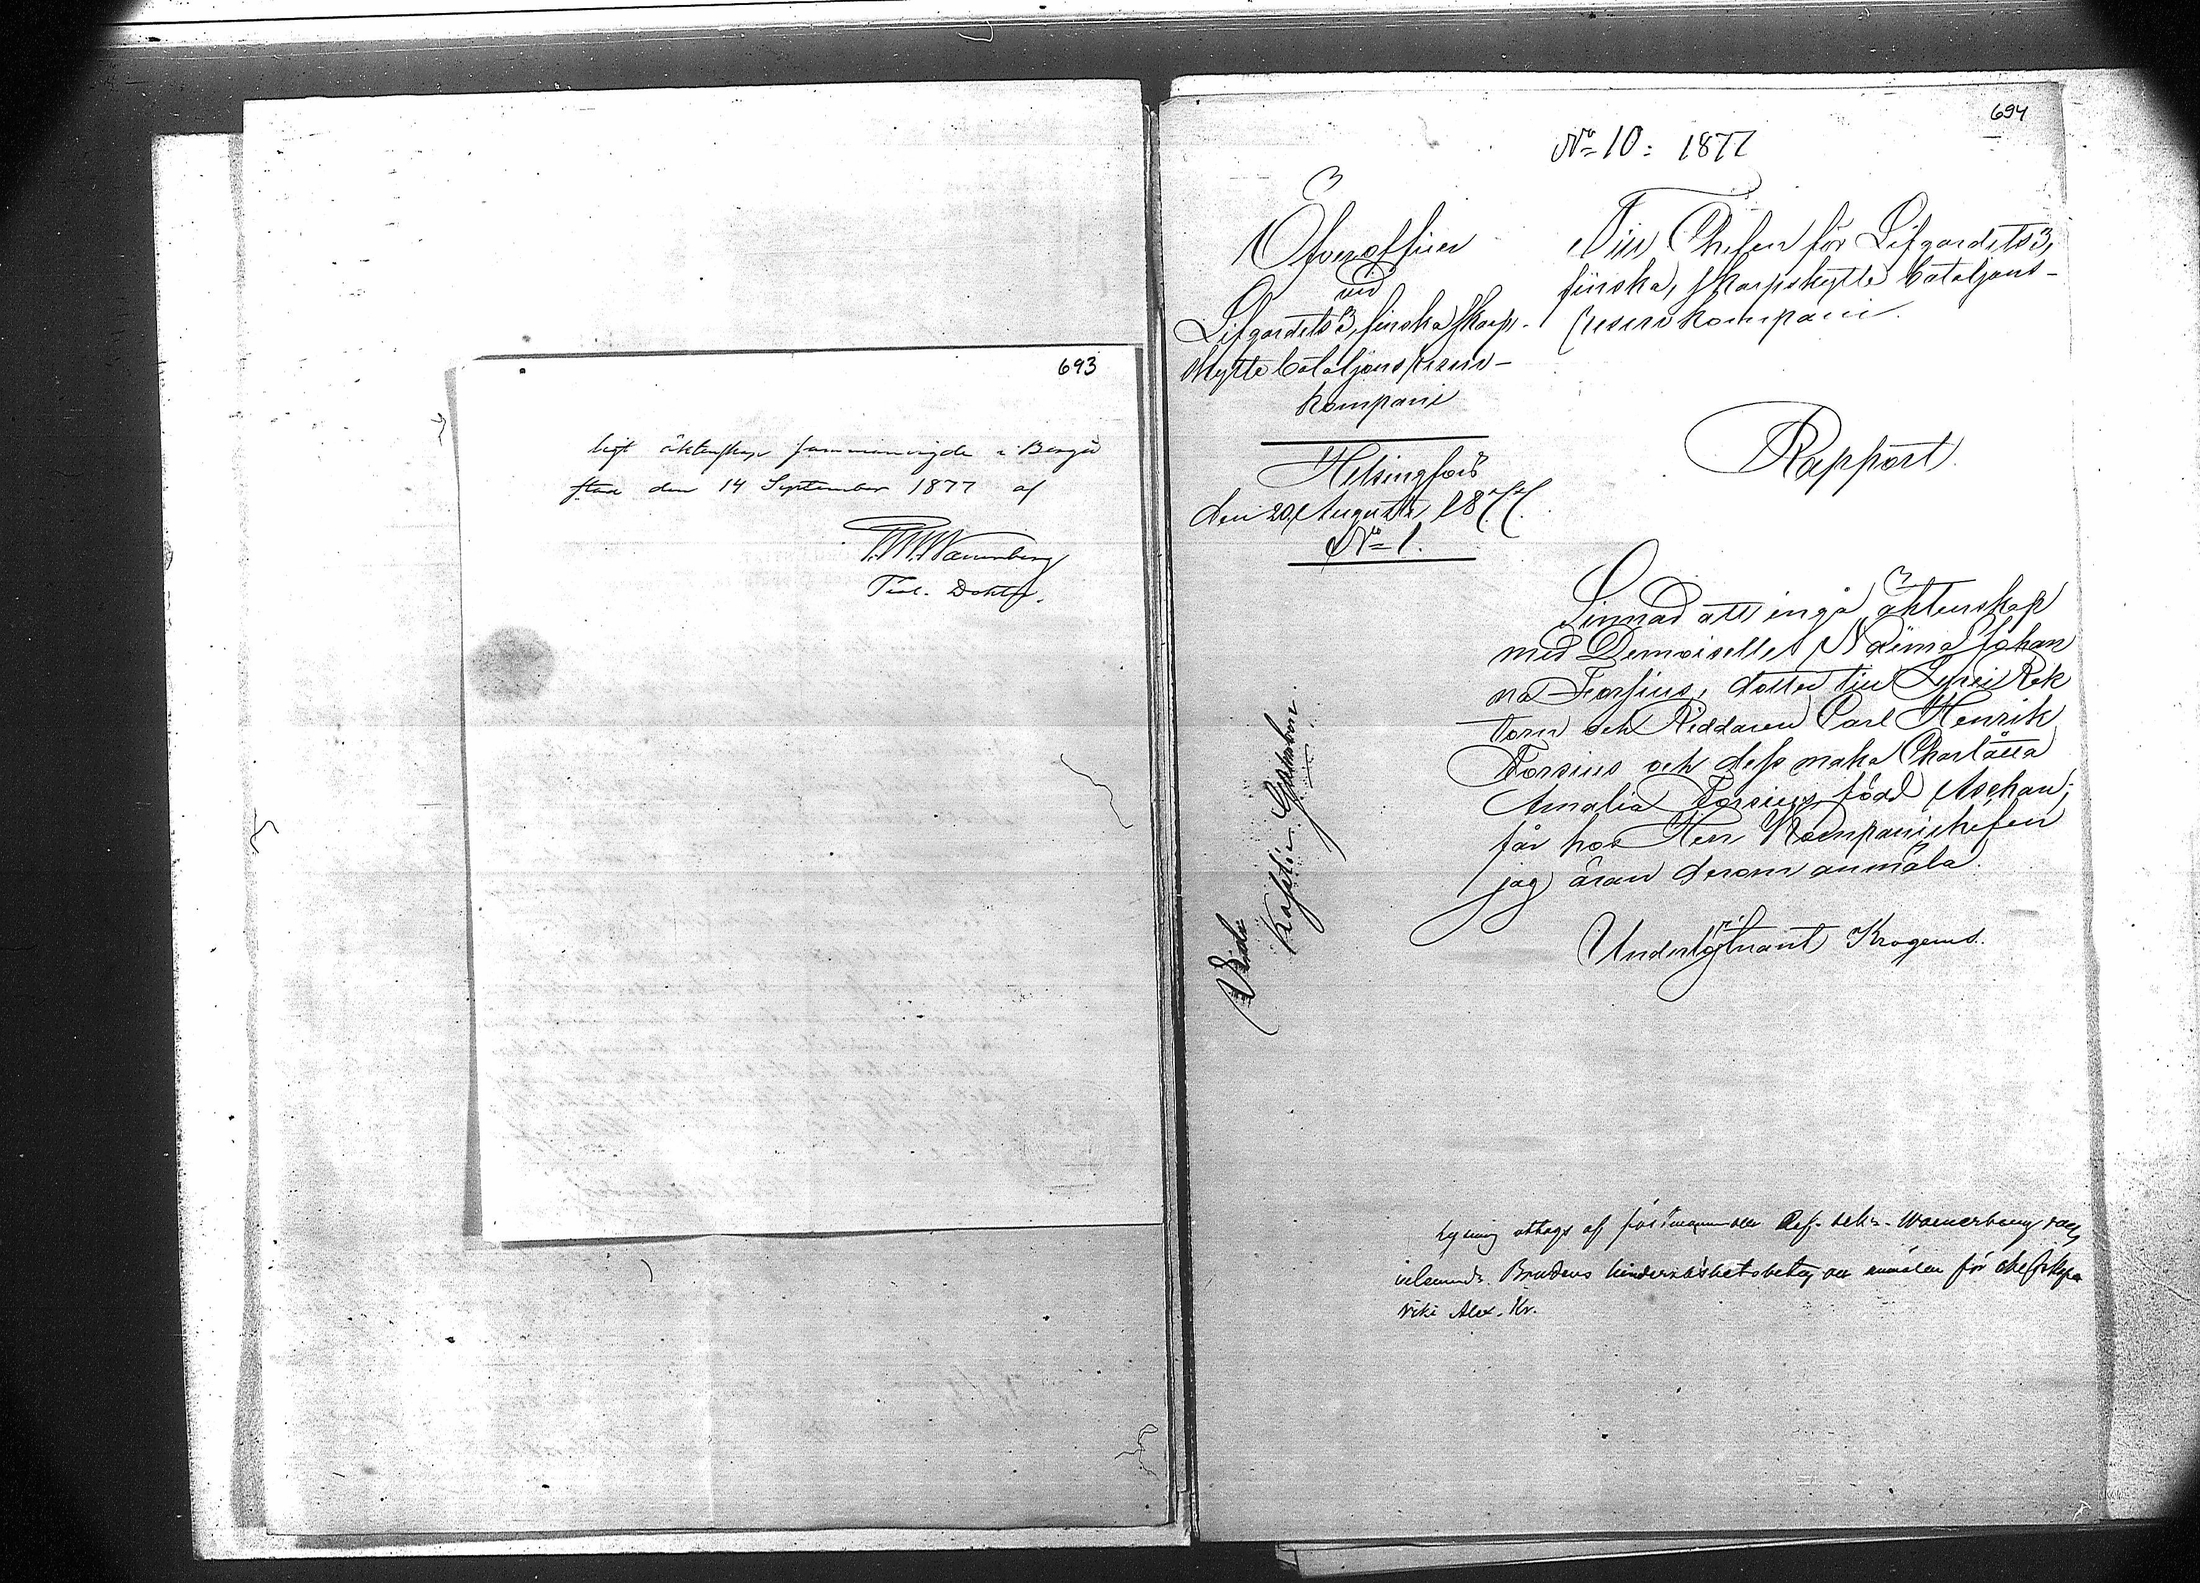 693
ligt äktenskap sammanvigde i Borgå
stad den 14 September 1877 af
Wanenberg
Teol. Doktor.
694
No 10: 1877
Öfverofficer
vid
Lifgardets 3, finska skarp-
skytte bataljons reserv-
kompani
Helsingfors
den 20 Augusti 1877.
No 1.
Till Chefen för Lifgardets 3,
finska, skarpskytte bataljons-
reservkompani.
Rapport.
Sinnad att ingå äktenskap
med Demoiselle Naëma Johan
na Forsius, dotter till Lycei Rek
torn och Riddaren Carl Henrik
Forsius och dess maka Charlåtta
Amalia Forsius född Aschan;
får hos Herr Kompanichefen
jag äran derom anmäla.
Underlöjtnant Krogerus.
Vidi
Kaptin
Lysning uttogs af Ref. sekr.
Brudens hinderslöshetsbetyg för
Alex. Kr.